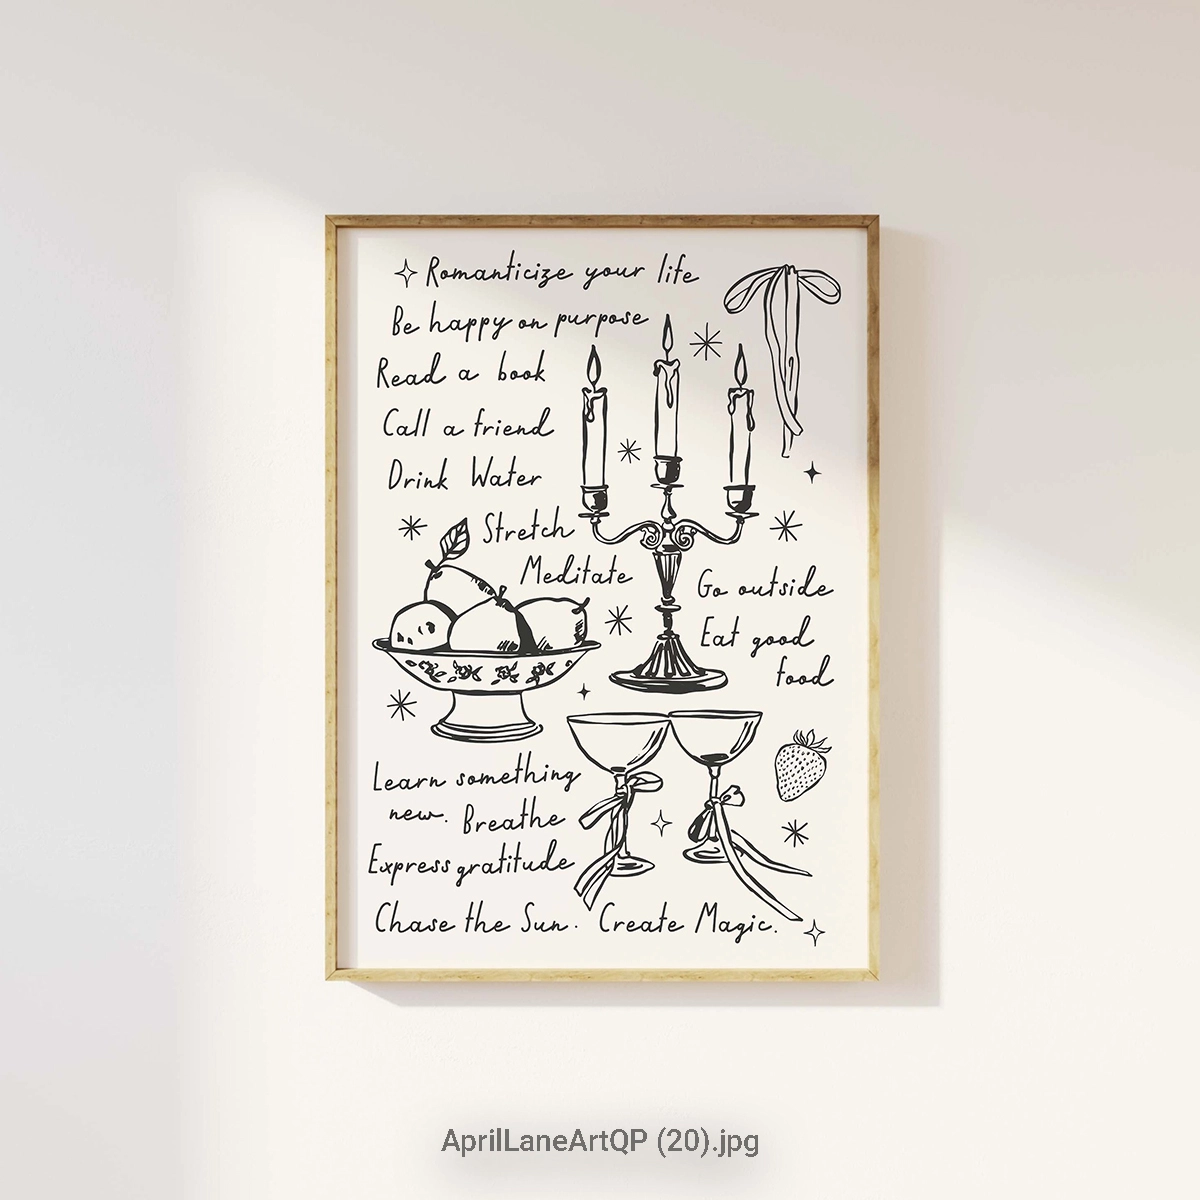 Romanticize your life
Be happy on purpose
Read a book
Call a friend
Drink Water
Stretch
Meditate
Go outside
Eat good
food
Learn something
new. Breathe
Express gratitude
Chase the Sun. Create Magic.
AprilLaneArtQP (20).jpg